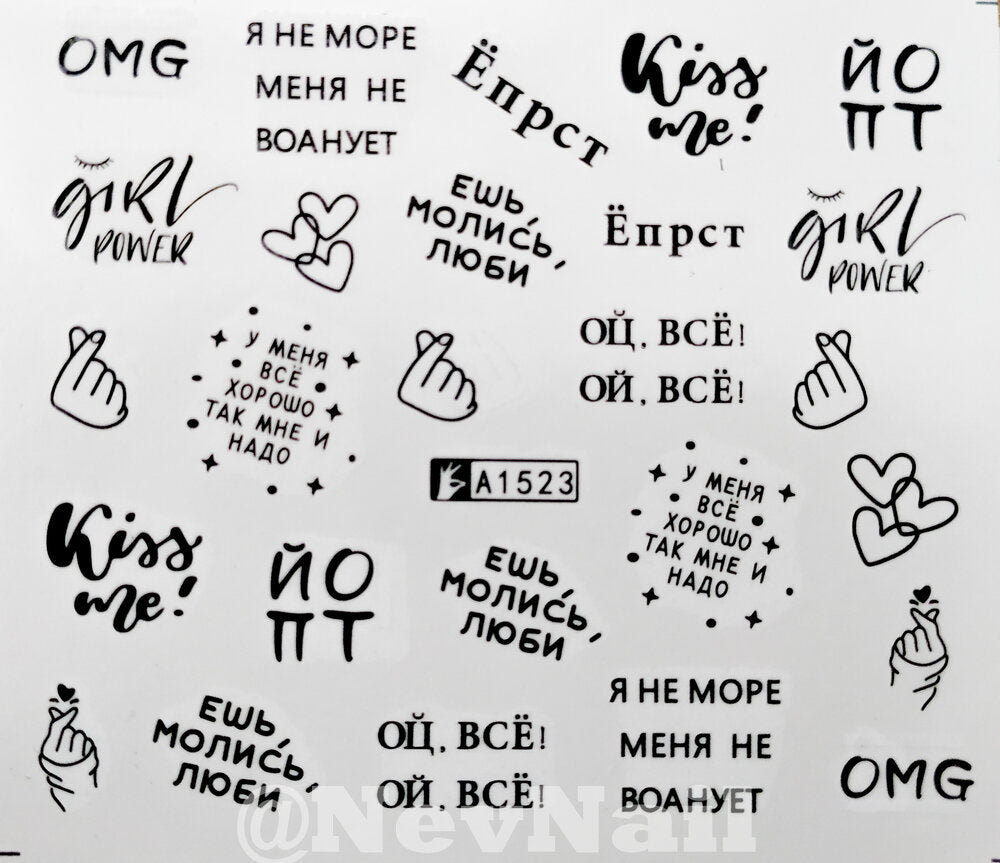 OMG
Я НЕ МОРЕ
МЕНЯ НЕ
ВОАНУЕТ
Ёпрст
Kiss
me!
ЙО
ПТ
GIRL
POWER
ЕШЬ,
МОЛИСЬ,
ЛЮБИ
Ёпрст
GIRL
POWER
У МЕНЯ
ВСЁ
ХОРОШО
ТАК МНЕ И
НАДО
ОЦ̆, ВСЁ!
ОЙ, ВСЁ!
A1523
У МЕНЯ
ВСЁ
ХОРОШО
ТАК МНЕ И
НАДО
Kiss
me!
ЙО
ПТ
ЕШЬ,
МОЛИСЬ,
ЛЮБИ
ЕШЬ,
МОЛИСЬ,
ЛЮБИ
ОЦ̆, ВСЁ!
ОЙ, ВСЁ!
Я НЕ МОРЕ
МЕНЯ НЕ
ВОАНУЕТ
OMG
@NevNail